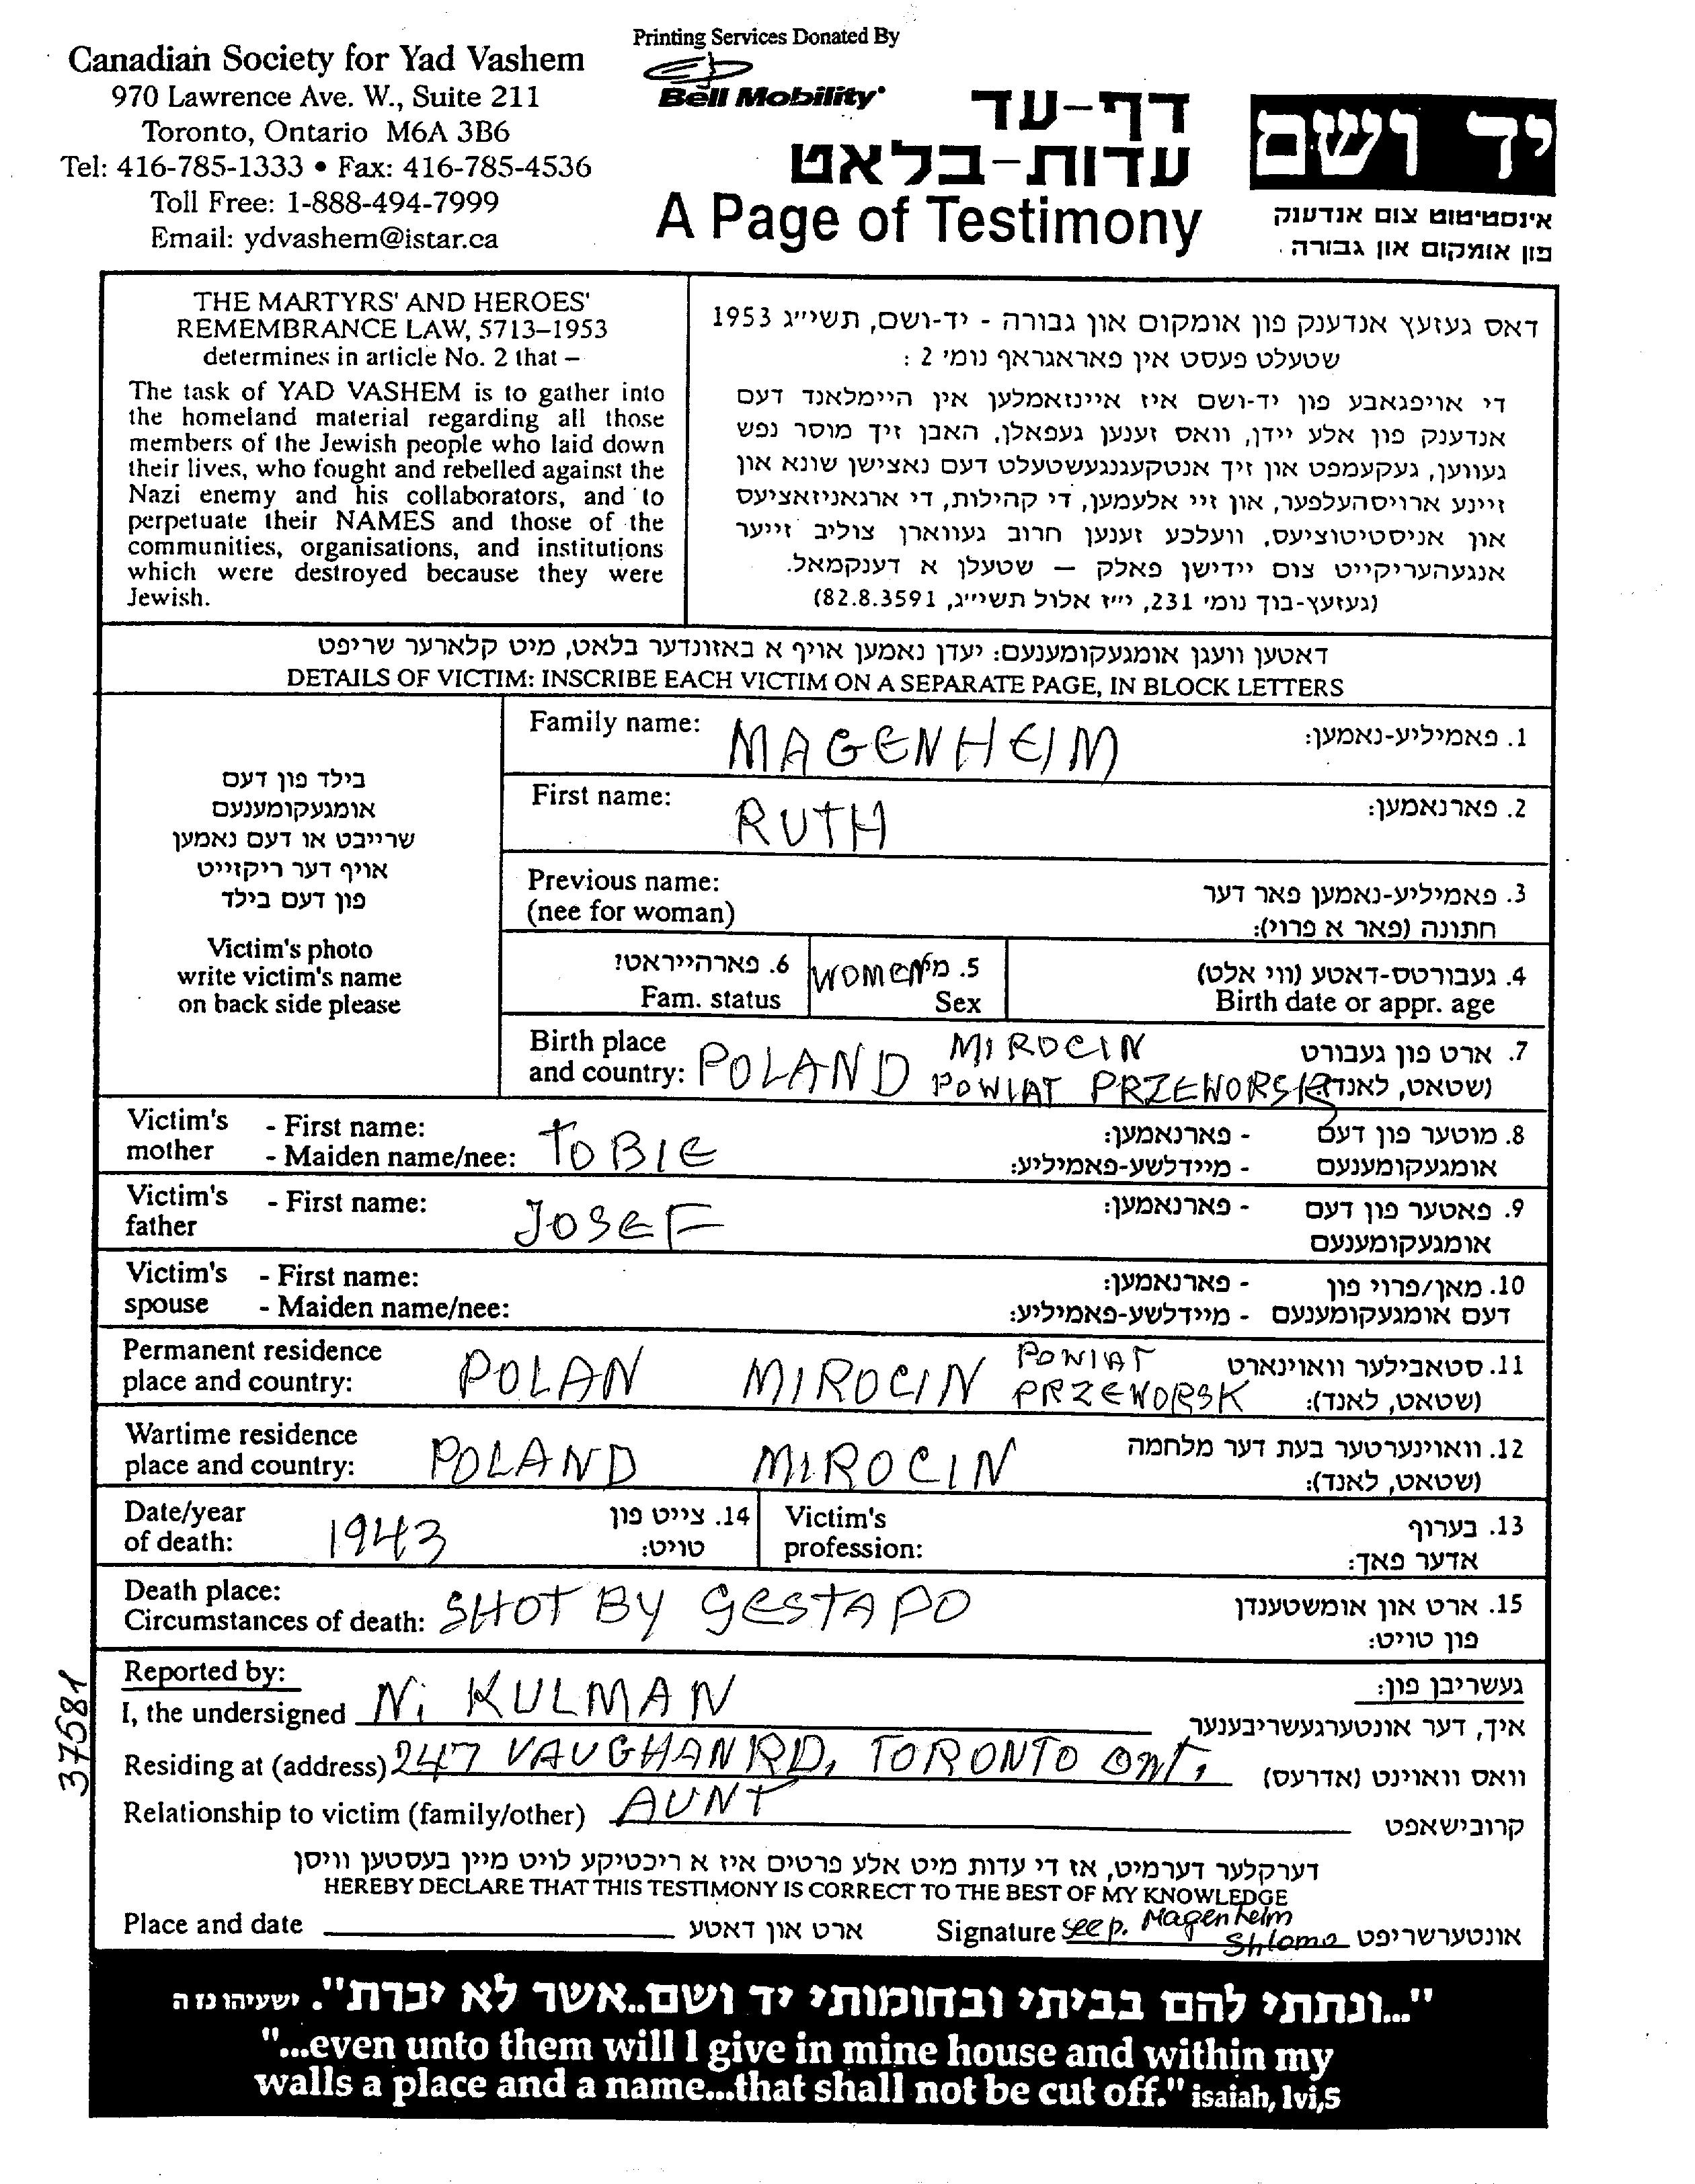 Canadian Society for Yad Vashem
970 Lawrence Ave. W., Suite 211
Toronto, Ontario M6A 3B6
Tel: 416-785-1333 • Fax: 416-785-4536
Toll Free: 1-888-494-7999
Email: ydvashem@istar.ca
Printing Services Donated By
Bell Mobility
דף-עד
עדות-בלאט
A Page of Testimony
יד ושם
אינסטיטוט צום אנדענק
פון אומקום און גבורה
THE MARTYRS' AND HEROES'
REMEMBRANCE LAW, 5713–1953
determines in article No. 2 that –
The task of YAD VASHEM is to gather into
the homeland material regarding all those
members of the Jewish people who laid down
their lives, who fought and rebelled against the
Nazi enemy and his collaborators, and to
perpetuate their NAMES and those of the
communities, organisations, and institutions
which were destroyed because they were
Jewish.
דאס געזעץ אנדענק פון אומקום און גבורה - יד-ושם, תשי״ג 1953
שטעלט פעסט אין פאראגראף נומ׳ 2 :
די אויפגאבע פון יד-ושם איז איינזאמלען אין היימלאנד דעם
אנדענק פון אלע יידן, וואס זענען געפאלן, האבן זיך מוסר נפש
געווען, געקעמפט און זיך אנטקעגנגעשטעלט דעם נאצישן שונא און
זיינע ארויסהעלפער, און זיי אלעמען, די קהילות, די ארגאניזאציעס
און אניסטיטוציעס, וועלכע זענען חרוב געווארן צוליב זייער
אנגעהעריקייט צום יידישן פאלק – שטעלן א דענקמאל.
(געזעץ-בוך נומ׳ 231, י״ז אלול תשי״ג, 82.8.3591)
דאטען וועגן אומגעקומענעם: יעדן נאמען אויף א באזונדער בלאט, מיט קלארער שריפט
DETAILS OF VICTIM: INSCRIBE EACH VICTIM ON A SEPARATE PAGE, IN BLOCK LETTERS
בילד פון דעם
אומגעקומענעם
שרייבט או דעם נאמען
אויף דער ריקזייט
פון דעם בילד
Victim's photo
write victim's name
on back side please
Family name: MAGENHEIM 1. פאמיליע-נאמען:
First name: RUTH 2. פארנאמען:
Previous name:
(nee for woman)
3. פאמיליע-נאמען פאר דער
חתונה (פאר א פרוי):
6. פארהייראט?
Fam. status
WOMEN 5. מין
Sex
4. געבורטס-דאטע (ווי אלט)
Birth date or appr. age
Birth place
and country: POLAND MIROCIN
POWIAT PRZEWORSK
7. ארט פון געבורט
(שטאט, לאנד)
Victim's mother - First name:
- Maiden name/nee: TOBIE
8. מוטער פון דעם - פארנאמען:
אומגעקומענעם - מיידלשע-פאמיליע:
Victim's father - First name: JOSEF
9. פאטער פון דעם - פארנאמען:
אומגעקומענעם
Victim's spouse - First name:
- Maiden name/nee:
10. מאן/פרוי פון - פארנאמען:
דעם אומגעקומענעם - מיידלשע-פאמיליע:
Permanent residence
place and country: POLAN MIROCIN POWIAT
PRZEWORSK
11. סטאבילער וואוינארט
(שטאט, לאנד):
Wartime residence
place and country: POLAND MIROCIN
12. וואוינערטער בעת דער מלחמה
(שטאט, לאנד):
Date/year
of death: 1943
14. צייט פון
טויט:
Victim's
profession:
13. בערוף
אדער פאך:
Death place:
Circumstances of death: SHOT BY GESTAPO
15. ארט און אומשטענדן
פון טויט:
Reported by: געשריבן פון:
I, the undersigned Ni KULMAN איך, דער אונטערגעשריבענער
Residing at (address) 247 VAUGHAN RD, TORONTO ONT, וואס וואוינט (אדרעס)
Relationship to victim (family/other) AUNT קרובישאפט
דערקלער דערמיט, אז די עדות מיט אלע פרטים איז א ריכטיקע לויט מיין בעסטען וויסן
HEREBY DECLARE THAT THIS TESTIMONY IS CORRECT TO THE BEST OF MY KNOWLEDGE
Place and date ארט און דאטע Signature see p. Magenheim
Shlomo אונטערשריפט
37581
"...ונתתי להם בביתי ובחומותי יד ושם..אשר לא יכרת". ישעיהו נו ה
"...even unto them will I give in mine house and within my
walls a place and a name...that shall not be cut off." isaiah, lvi,5